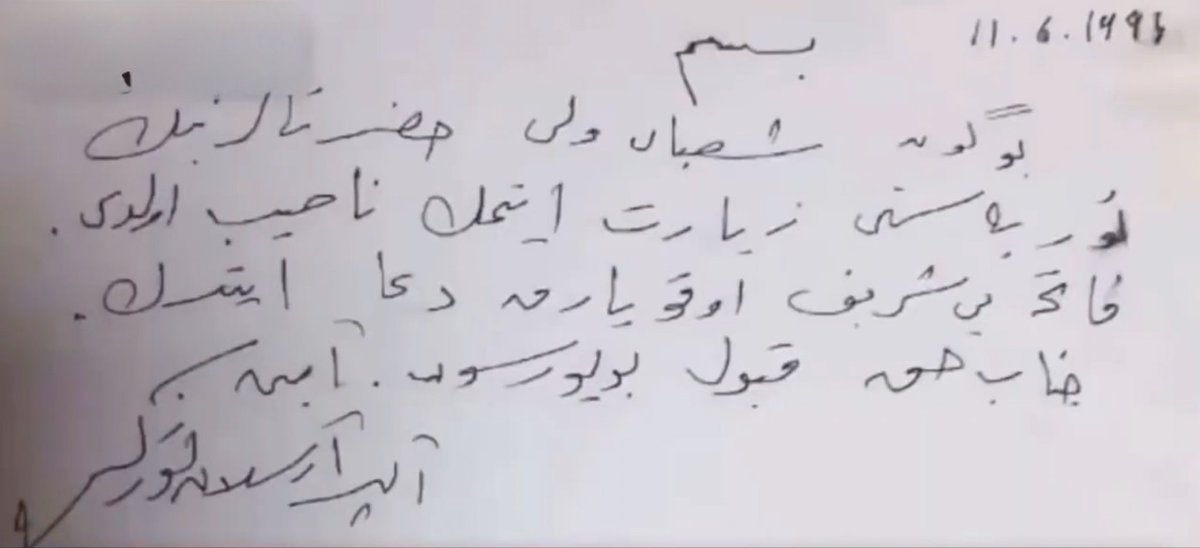 11.6.
بسم
بوگون شعبان ولی حضرتالرینك
تُوربه سنی زیارت ایتمك ناصیب اولدی.
فاتحه یی شریف اوقویارق دعا ایتدك.
جناب حق قبول بویورسون. آمین.
آلپ آرسلان تورکش